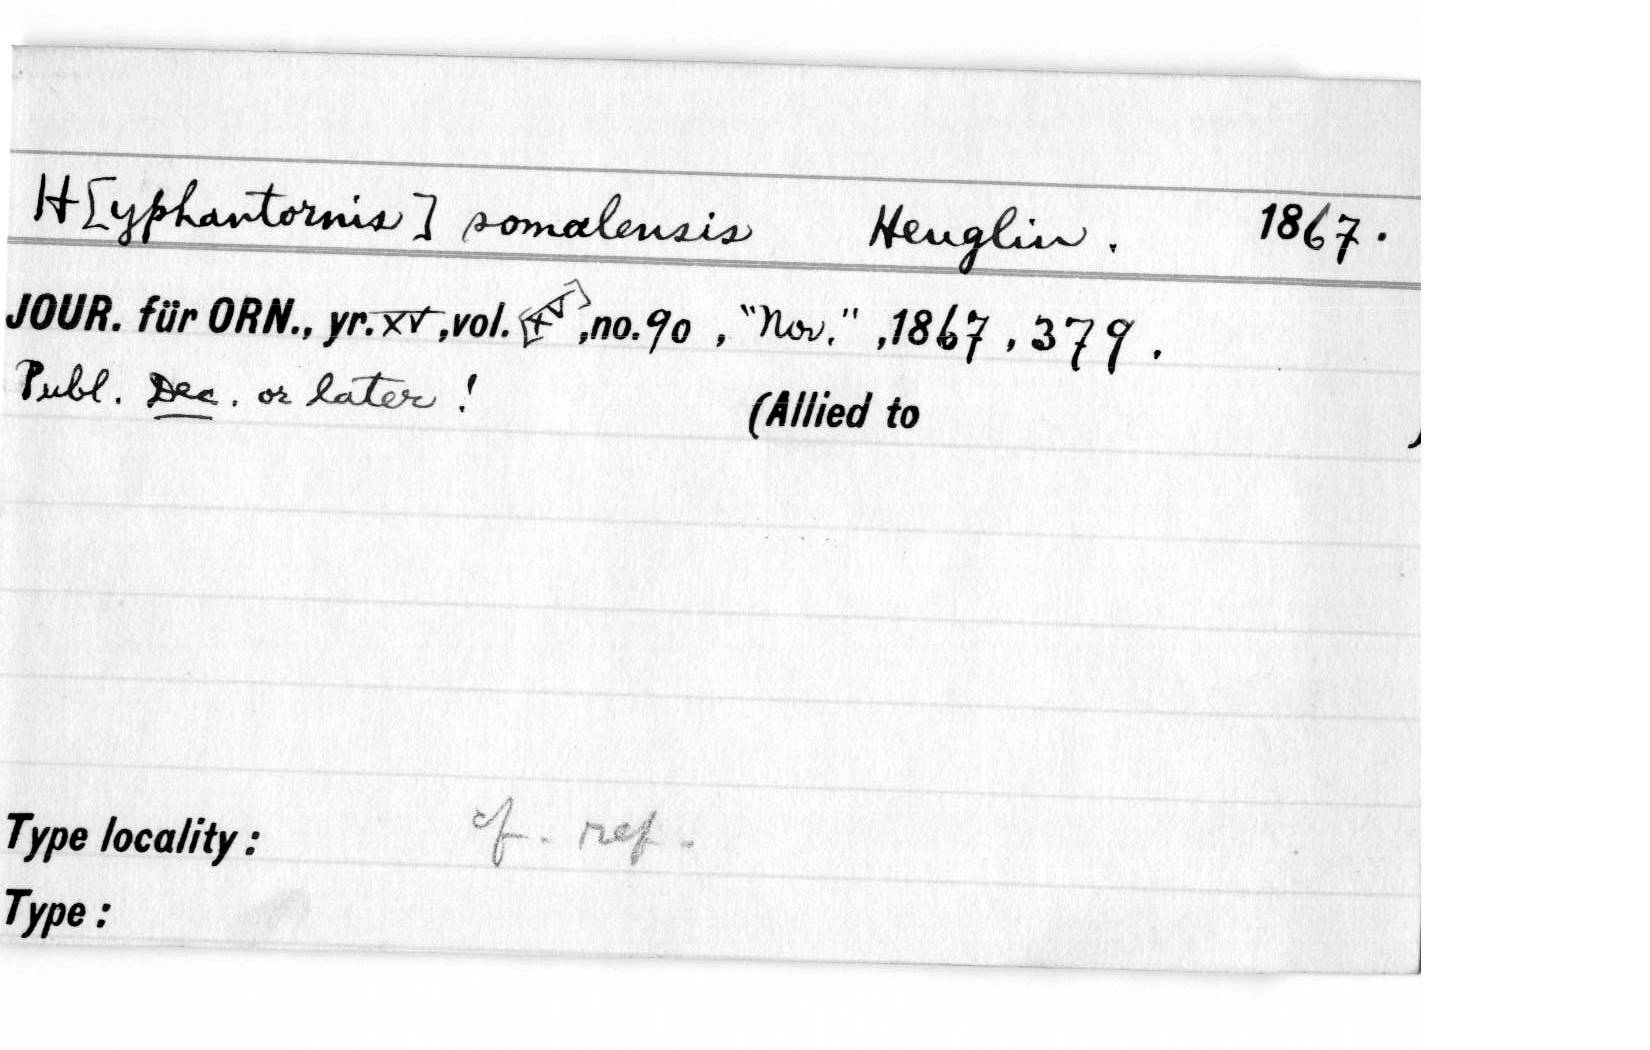 H[yphantornis] somalensis Heuglin. 1867.
JOUR. für ORN., yr. XV, vol. [XV], no. 90, "Nov.", 1867, 379.
Publ. Dec. or later!
(Allied to )
Type locality: cf. ref.
Type: